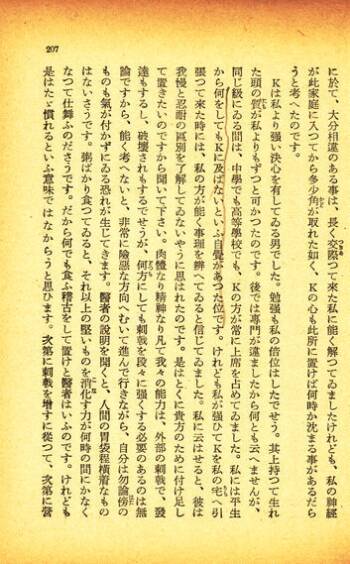 207
に於て、大分相違のある事は、長く交際つて來た私に能く解つてゐましたけれども、私の神經
が此家庭に入つてから多少角が取れた如く、Kの心も此所に置けば何時か沈まる事があるだら
うと考へたのです。
Kは私より强い決心を有してゐる男でした。勉强も私の倍位はしたでせう。其上持つて生れ
た頭の質が私よりもずつと可かつたのです。後では專門が違ましたから何とも云へませんが、
同じ級にゐる間は、中學でも高等學校でも、Kの方が常に上席を占めてゐました。私には平生
から何をしてもKに及ばないといふ自覺があつた位です。けれども私が强ひてKを私の宅へ引
張つて來た時には、私の方が能く事理を辨へてゐると信じてゐました。私に云はせると、彼は
我慢と忍耐の區別を了解してゐないやうに思はれたのです。是はとくに貴方のために付け足し
て置きたいのですから聞いて下さい。肉體なり精神なり凡て我々の能力は、外部の刺戟で、發
達もするし、破壞されもするでせうが、何方にしても刺戟を段々に强くする必要のあるのは無
論ですから、能く考へないと、非常に險惡な方向へむいて進んで行きながら、自分は勿論傍の
ものも氣が付かずにゐる恐れが生じてきます。醫者の說明を聞くと、人間の胃袋程橫着なもの
はないさうです。粥ばかり食つてゐると、それ以上の堅いものを消化す力が何時の間にかなく
なつて仕舞ふのださうです。だから何でも食ふ稽古をして置けと醫者はいふのです。けれども
是はたゞ慣れるといふ意味ではなからうと思ひます。次第に刺戟を增すに從つて、次第に營